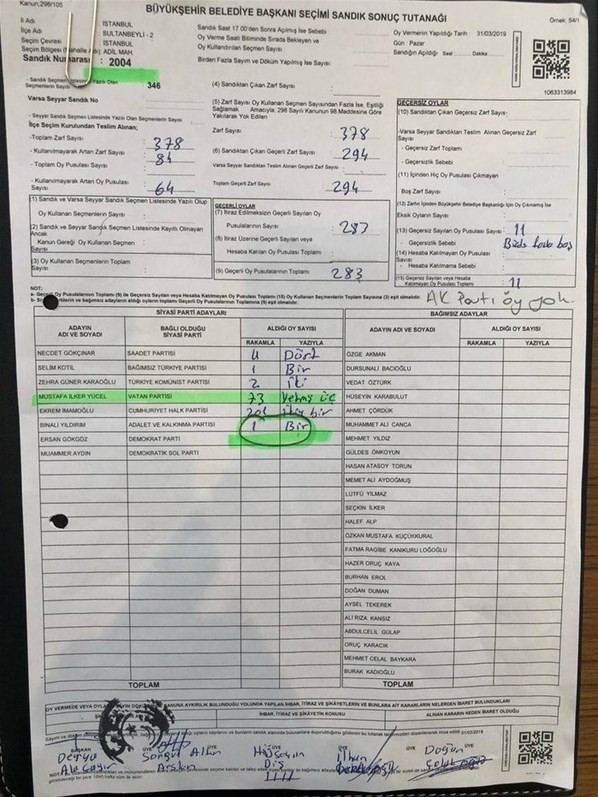 Kanun,298/105
BÜYÜKŞEHİR BELEDİYE BAŞKANI SEÇİMİ SANDIK SONUÇ TUTANAĞI
Örnek: 54/1
İli Adı İSTANBUL
İlçe Adı SULTANBEYLİ - 2
Seçim Çevresi İSTANBUL
Seçim Bölgesi (Mahalle Adı) ADİL MAH.
Sandık Numarası : 2004
Sandık Saat 17.00'den Sonra Açılmış İse Sebebi
Oy Verme Saati Bitiminde Sırada Bekleyen ve
Oy Kullandırılan Seçmen Sayısı
Birden Fazla Sayım ve Döküm Yapılmış İse Sayısı
Oy Vermenin Yapıldığı Tarih : 31/03/2019
Gün : Pazar
Sandığın Açıldığı Saat Dakika
1063313984
- Sandık Seçmen Listesinde Yazılı Olan
Seçmenlerin Sayısı 346
Varsa Seyyar Sandık No
- Seyyar Sandık Seçmen Listesinde Yazılı Olan Seçmenlerin Sayısı
İlçe Seçim Kurulundan Teslim Alınan;
-Toplam Zarf Sayısı : 378
- Kullanılmayarak Artan Zarf Sayısı : 84
- Toplam Oy Pusulası Sayısı :
- Kullanılmayarak Artan Oy Pusulası
Sayısı : 64
(1) Sandık ve Varsa Seyyar Sandık Seçmen Listesinde Yazılı Olup
Oy Kullanan Seçmenlerin Sayısı :
(2) Sandık ve Varsa Seyyar Sandık Seçmen Listesinde Kayıtlı Olmayan
Ancak
Kanun Gereği Oy Kullanan Seçmen
Sayısı
(3) Oy Kullanan Seçmenlerin Toplam
Sayısı
(4) Sandıktan Çıkan Zarf Sayısı
(5) Zarf Sayısı Oy Kullanan Seçmen Sayısından Fazla İse, Eşitliği
Sağlamak Amacıyla; 298 Sayılı Kanunun 98 Maddesine Göre
Yakılarak Yok Edilen
Zarf Sayısı : 378
(6) Sandıktan Çıkan Geçerli Zarf Sayısı : 294
Varsa Seyyar Sandıktan Teslim Alınan Geçerli Zarf Sayısı
Toplam Geçerli Zarf Sayısı : 294
GEÇERLİ OYLAR
(7) İtiraz Edilmeksizin Geçerli Sayılan Oy
Pusulalarının Sayısı : 287
(8) İtiraz Üzerine Geçerli Sayılan veya
Hesaba Katılan Oy Pusulası Sayısı :
(9) Geçerli Oy Pusulalarının Toplamı : 283
GEÇERSİZ OYLAR
(10) Sandıktan Çıkan Geçersiz Zarf Sayısı :
Varsa Seyyar Sandıktan Teslim Alınan Geçersiz Zarf
Sayısı
- Geçersiz Zarf Toplamı :
- Geçersizlik Sebebi :
(11) İçinden Hiç Oy Pusulası Çıkmayan
Boş Zarf Sayısı :
(12) Zarfın İçinden Büyükşehir Belediye Başkanlığı İçin Oy Çıkmamış İse
Eksik Oyların Sayısı :
(13) Geçersiz Sayılan Oy Pusulası Sayısı : 11
- Geçersizlik Sebebi :
(14) Hesaba Katılmayan Oy Pusulası Sayısı :
- Hesaba Katılmama Sebebi :
(15) Geçersiz veya Hesaba
Katılmayan Oy Pusulası Toplamı : 11
AK Parti oy yok.
NOT:
SİYASİ PARTİ ADAYLARI
ADAYIN ADI VE SOYADI BAĞLI OLDUĞU SİYASİ PARTİ ALDIĞI OY SAYISI
RAKAMLA YAZIYLA
NECDET GÖKÇINAR SAADET PARTİSİ 4 Dört
SELİM KOTİL BAĞIMSIZ TÜRKİYE PARTİSİ 1 Bir
ZEHRA GÜNER KARAOĞLU TÜRKİYE KOMÜNİST PARTİSİ 2 İki
MUSTAFA İLKER YÜCEL VATAN PARTİSİ 73 Yetmiş üç
EKREM İMAMOĞLU CUMHURİYET HALK PARTİSİ 201
BİNALİ YILDIRIM ADALET VE KALKINMA PARTİSİ 1 Bir
ERSAN GÖKGÖZ DEMOKRAT PARTİ
MUAMMER AYDIN DEMOKRATİK SOL PARTİ
TOPLAM
BAĞIMSIZ ADAYLAR
ADAYIN ADI VE SOYADI ALDIĞI OY SAYISI
RAKAMLA YAZIYLA
ÖZGE AKMAN
DURSUNALİ BACIOĞLU
VEDAT ÖZTÜRK
HÜSEYİN KARABULUT
AHMET ÇÖRDÜK
MUHAMMET ALİ CANCA
MEHMET YILDIZ
GÜLDES ÖNKOYUN
HASAN ATASOY TORUN
MEMET ALİ AYDOĞMUŞ
LÜTFÜ YILMAZ
SEÇKİN İLKER
HALEF ALP
ÖZKAN MUSTAFA KÜÇÜKKURAL
FATMA RAGİBE KANIKURU LOĞOĞLU
HAZER ORUÇ KAYA
BURHAN EROL
DOĞAN DUMAN
AYSEL TEKEREK
ALİ RIZA KANSIZ
ABDULCELİL GÜLAP
ORUÇ KARACIK
MEHMET CELAL BAYKARA
BURAK KADIOĞLU
TOPLAM
İHBAR, İTİRAZ VE ŞİKAYETİN KONUSU ALINAN KARARIN NEDEN İBARET OLDUĞU
BAŞKAN ÜYE ÜYE ÜYE ÜYE
Derya Songül Altun Hüseyin İlhan Doğan